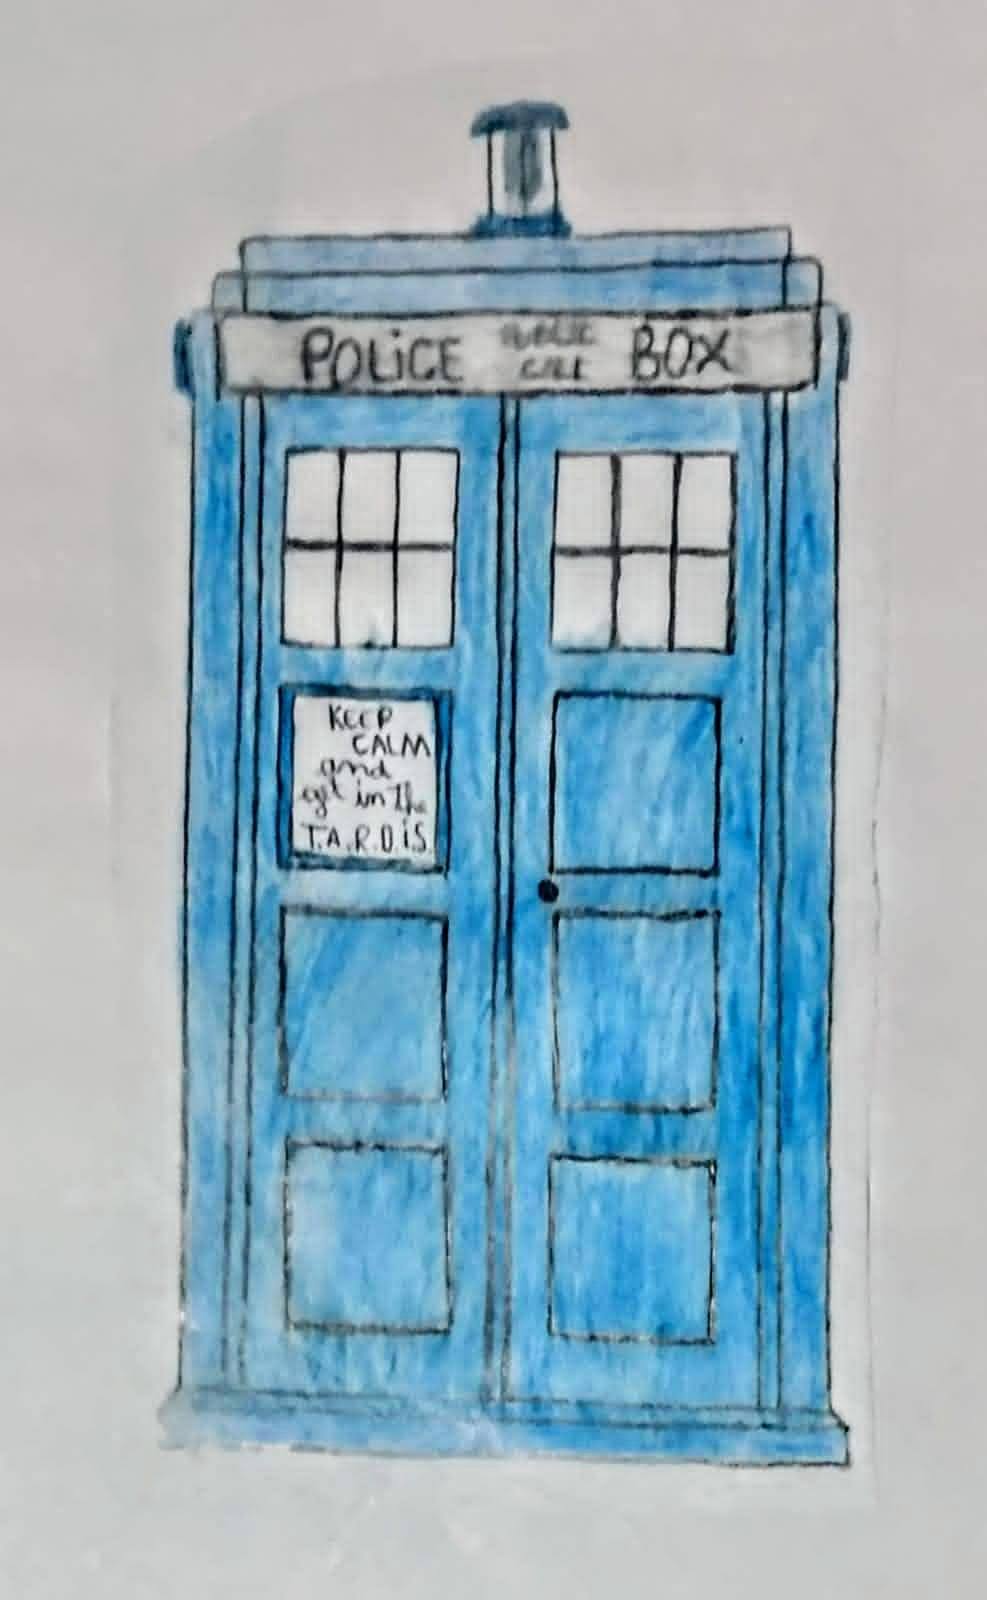 POLiCE PUBLIC CALL BOX
KEEP
CALM
and
get in the
T.A.R.D.i.S.